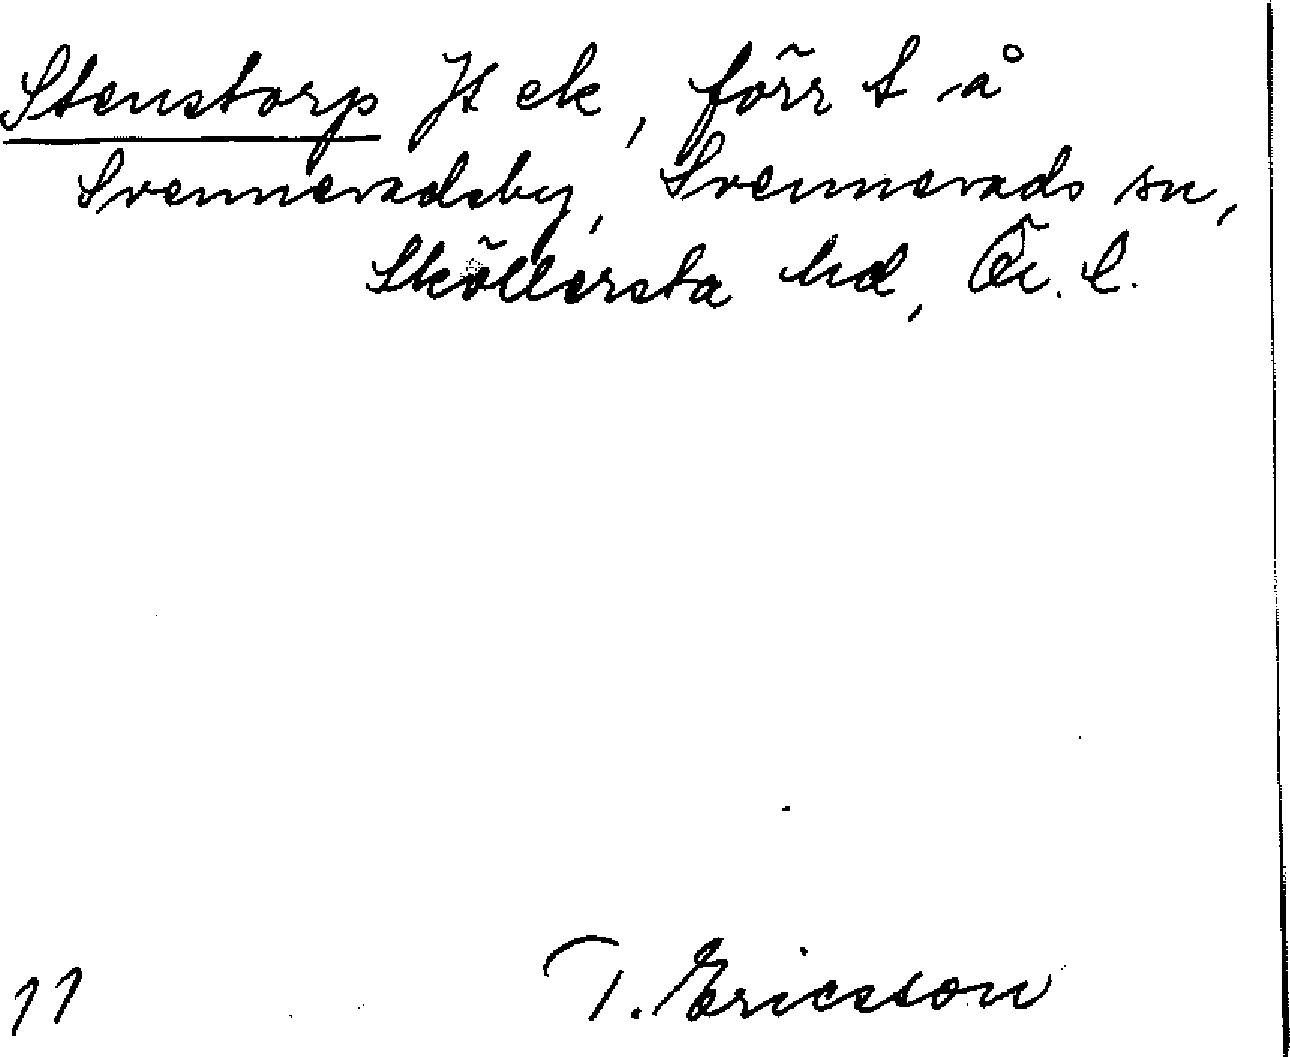 Stenstorp Jt ek, förr t å
Svennevadsby, Svennevads sn,
Sköllersta hd, Ör. l.
11
T. Ericsson